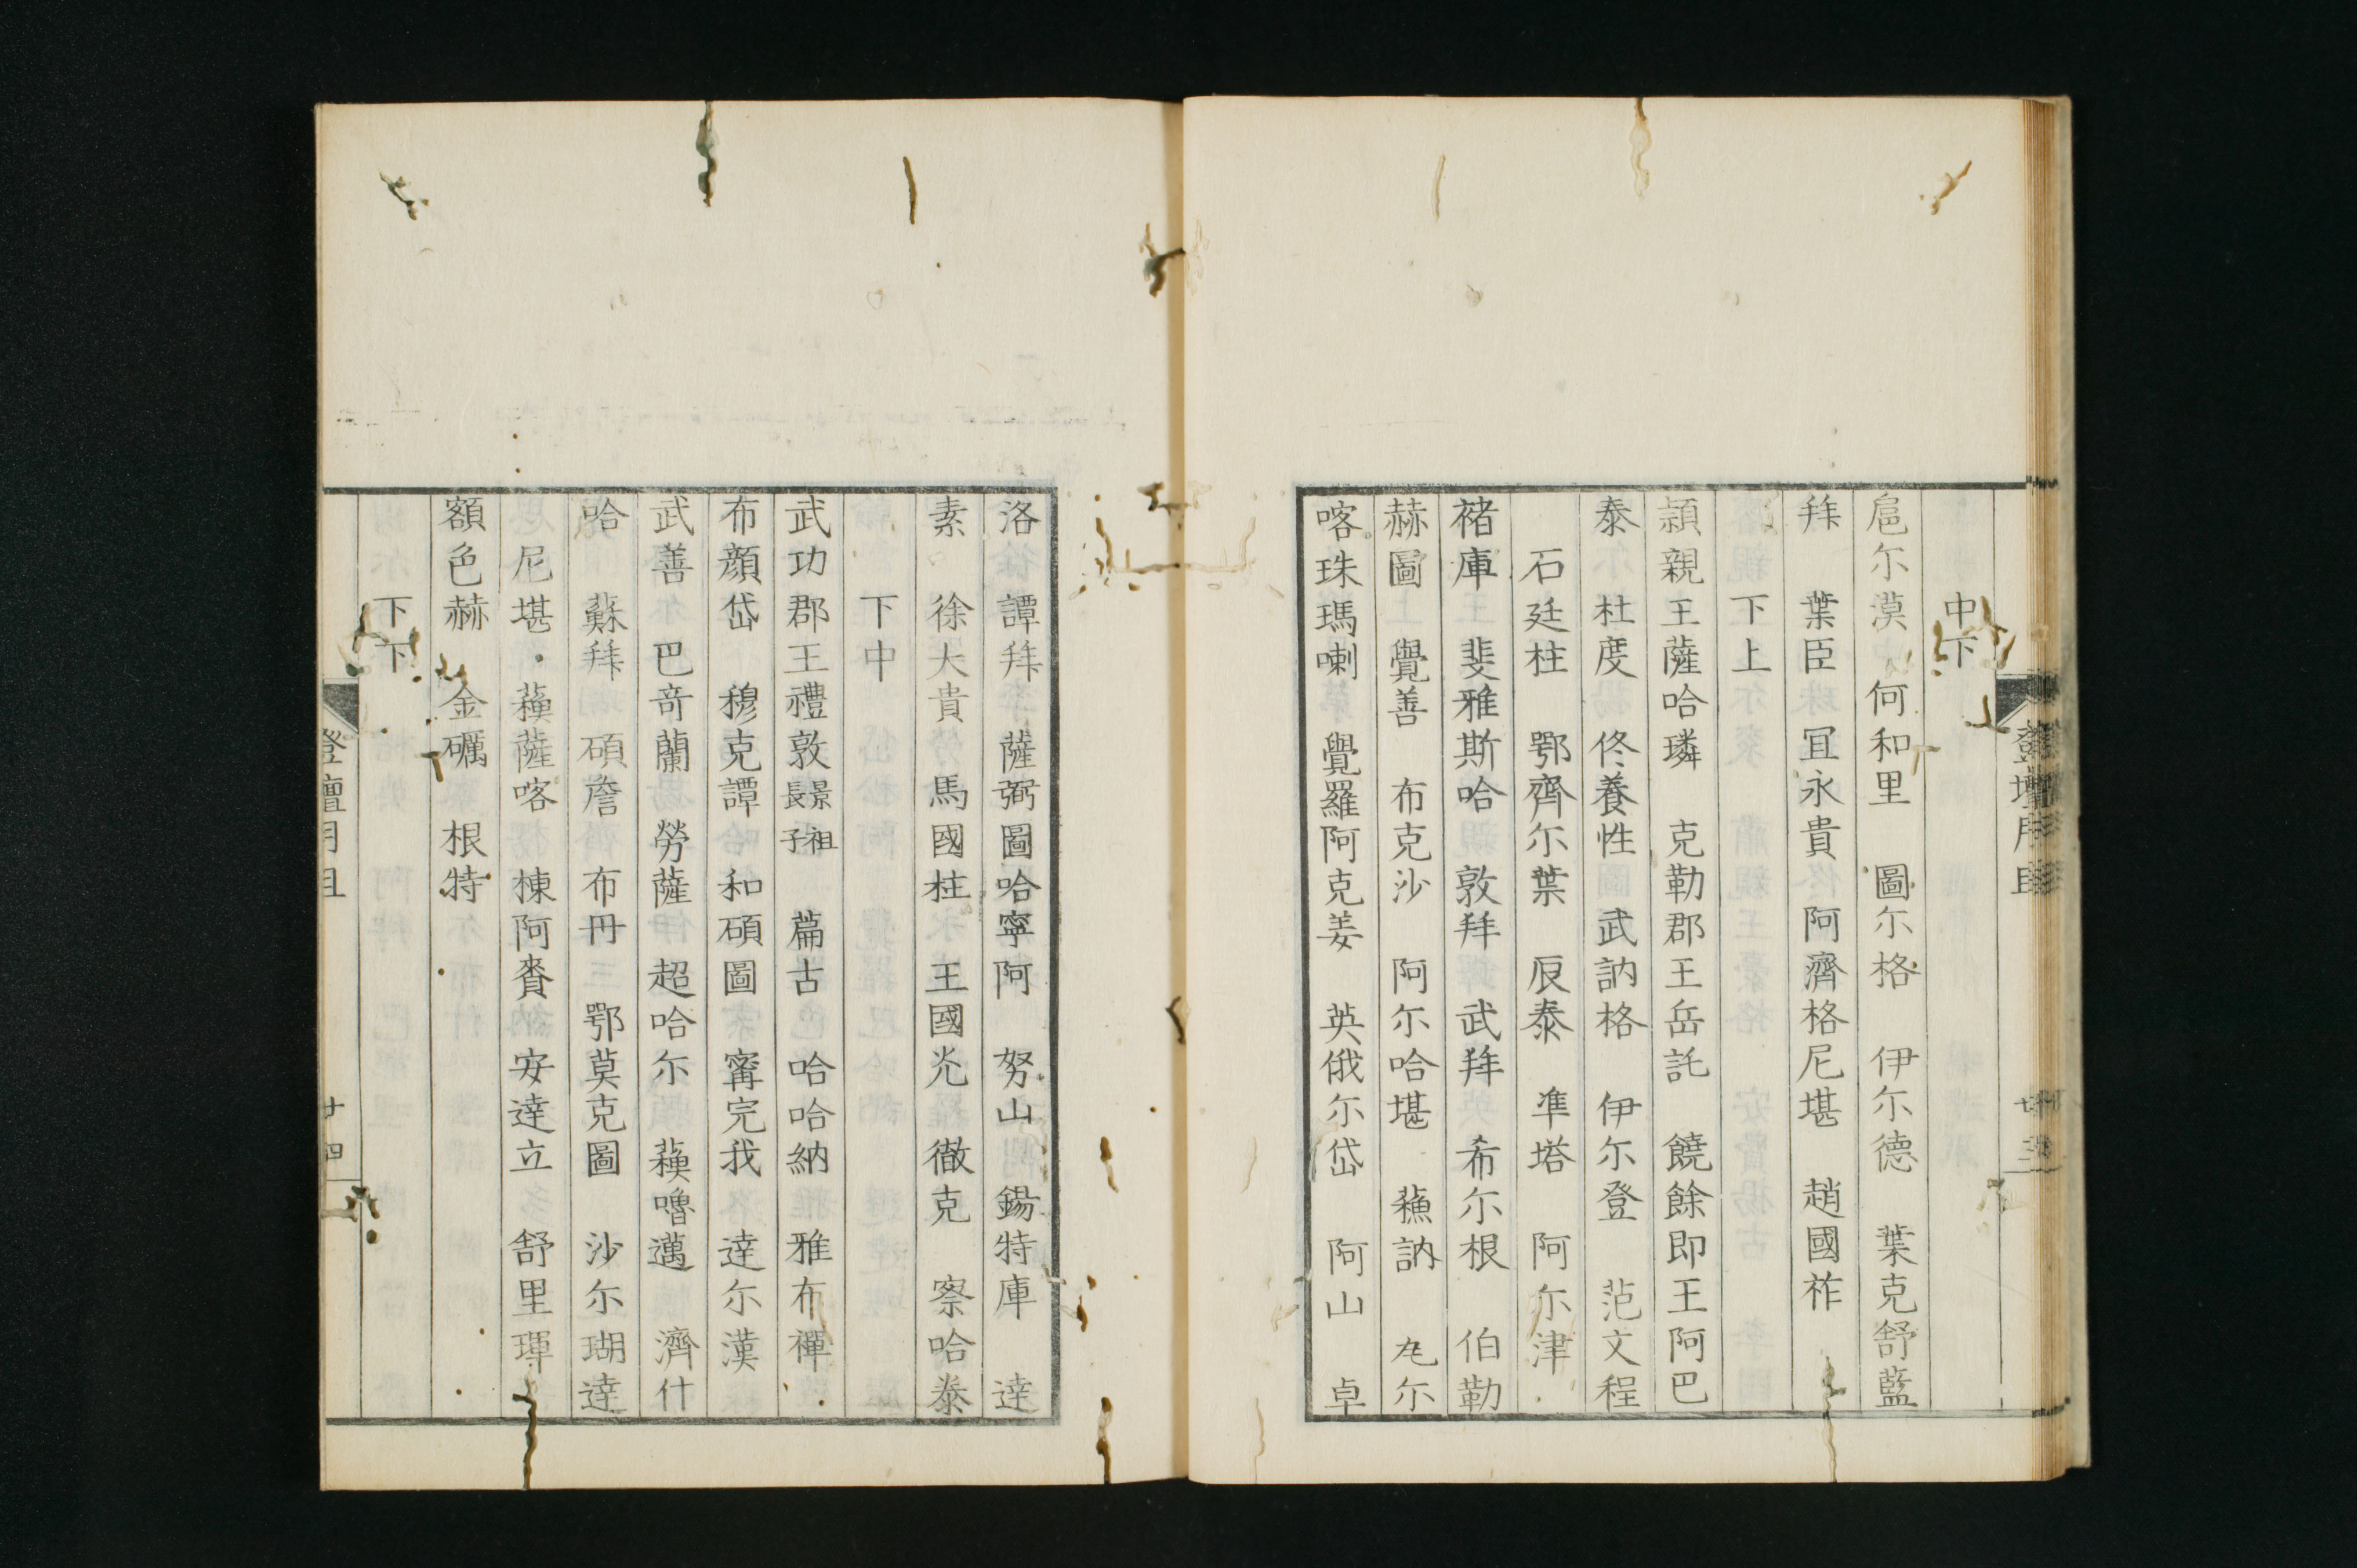 登壇
中下
扈尔漠 何和里 圖尔格 伊尔德 葉克舒藍
拜 葉臣 冝永貴 阿濟格尼堪 趙國祚
下上
頴親王薩哈璘 克勒郡王岳託 饒餘郡王阿巴
泰 杜度 佟養性 武訥格 伊尔登 范文程
石廷柱 鄂齊尔葉 辰泰 準塔 阿尔津
褚庫 斐雅斯哈 敦拜 武拜 希尔根 伯勒
赫圖 覺善 布克沙 阿尔哈堪 蘓訥 尨尔
喀珠瑪喇 覺羅阿克姜 英俄尔岱 阿山 卓
洛 譚拜 薩弼圖 哈寧阿 努山 錫特庫 達
素 徐大貴 馬國柱 王國光 徹克 察哈泰
下中
武功郡王禮敦景祖長子 篇古 哈哈納 雅布禪
布顔岱 穆克譚 和碩圖 甯完我 達尔漢
武善 巴奇蘭 勞薩 超哈尔 蘓嚕邁 濟什
哈 蘇拜 碩詹 布丹 鄂莫克圖 沙尔瑚達
尼堪 蘓薩喀 棟阿賚 安達立 舒里琿
額色赫 金礪 根特
下下
登壇目
廿四